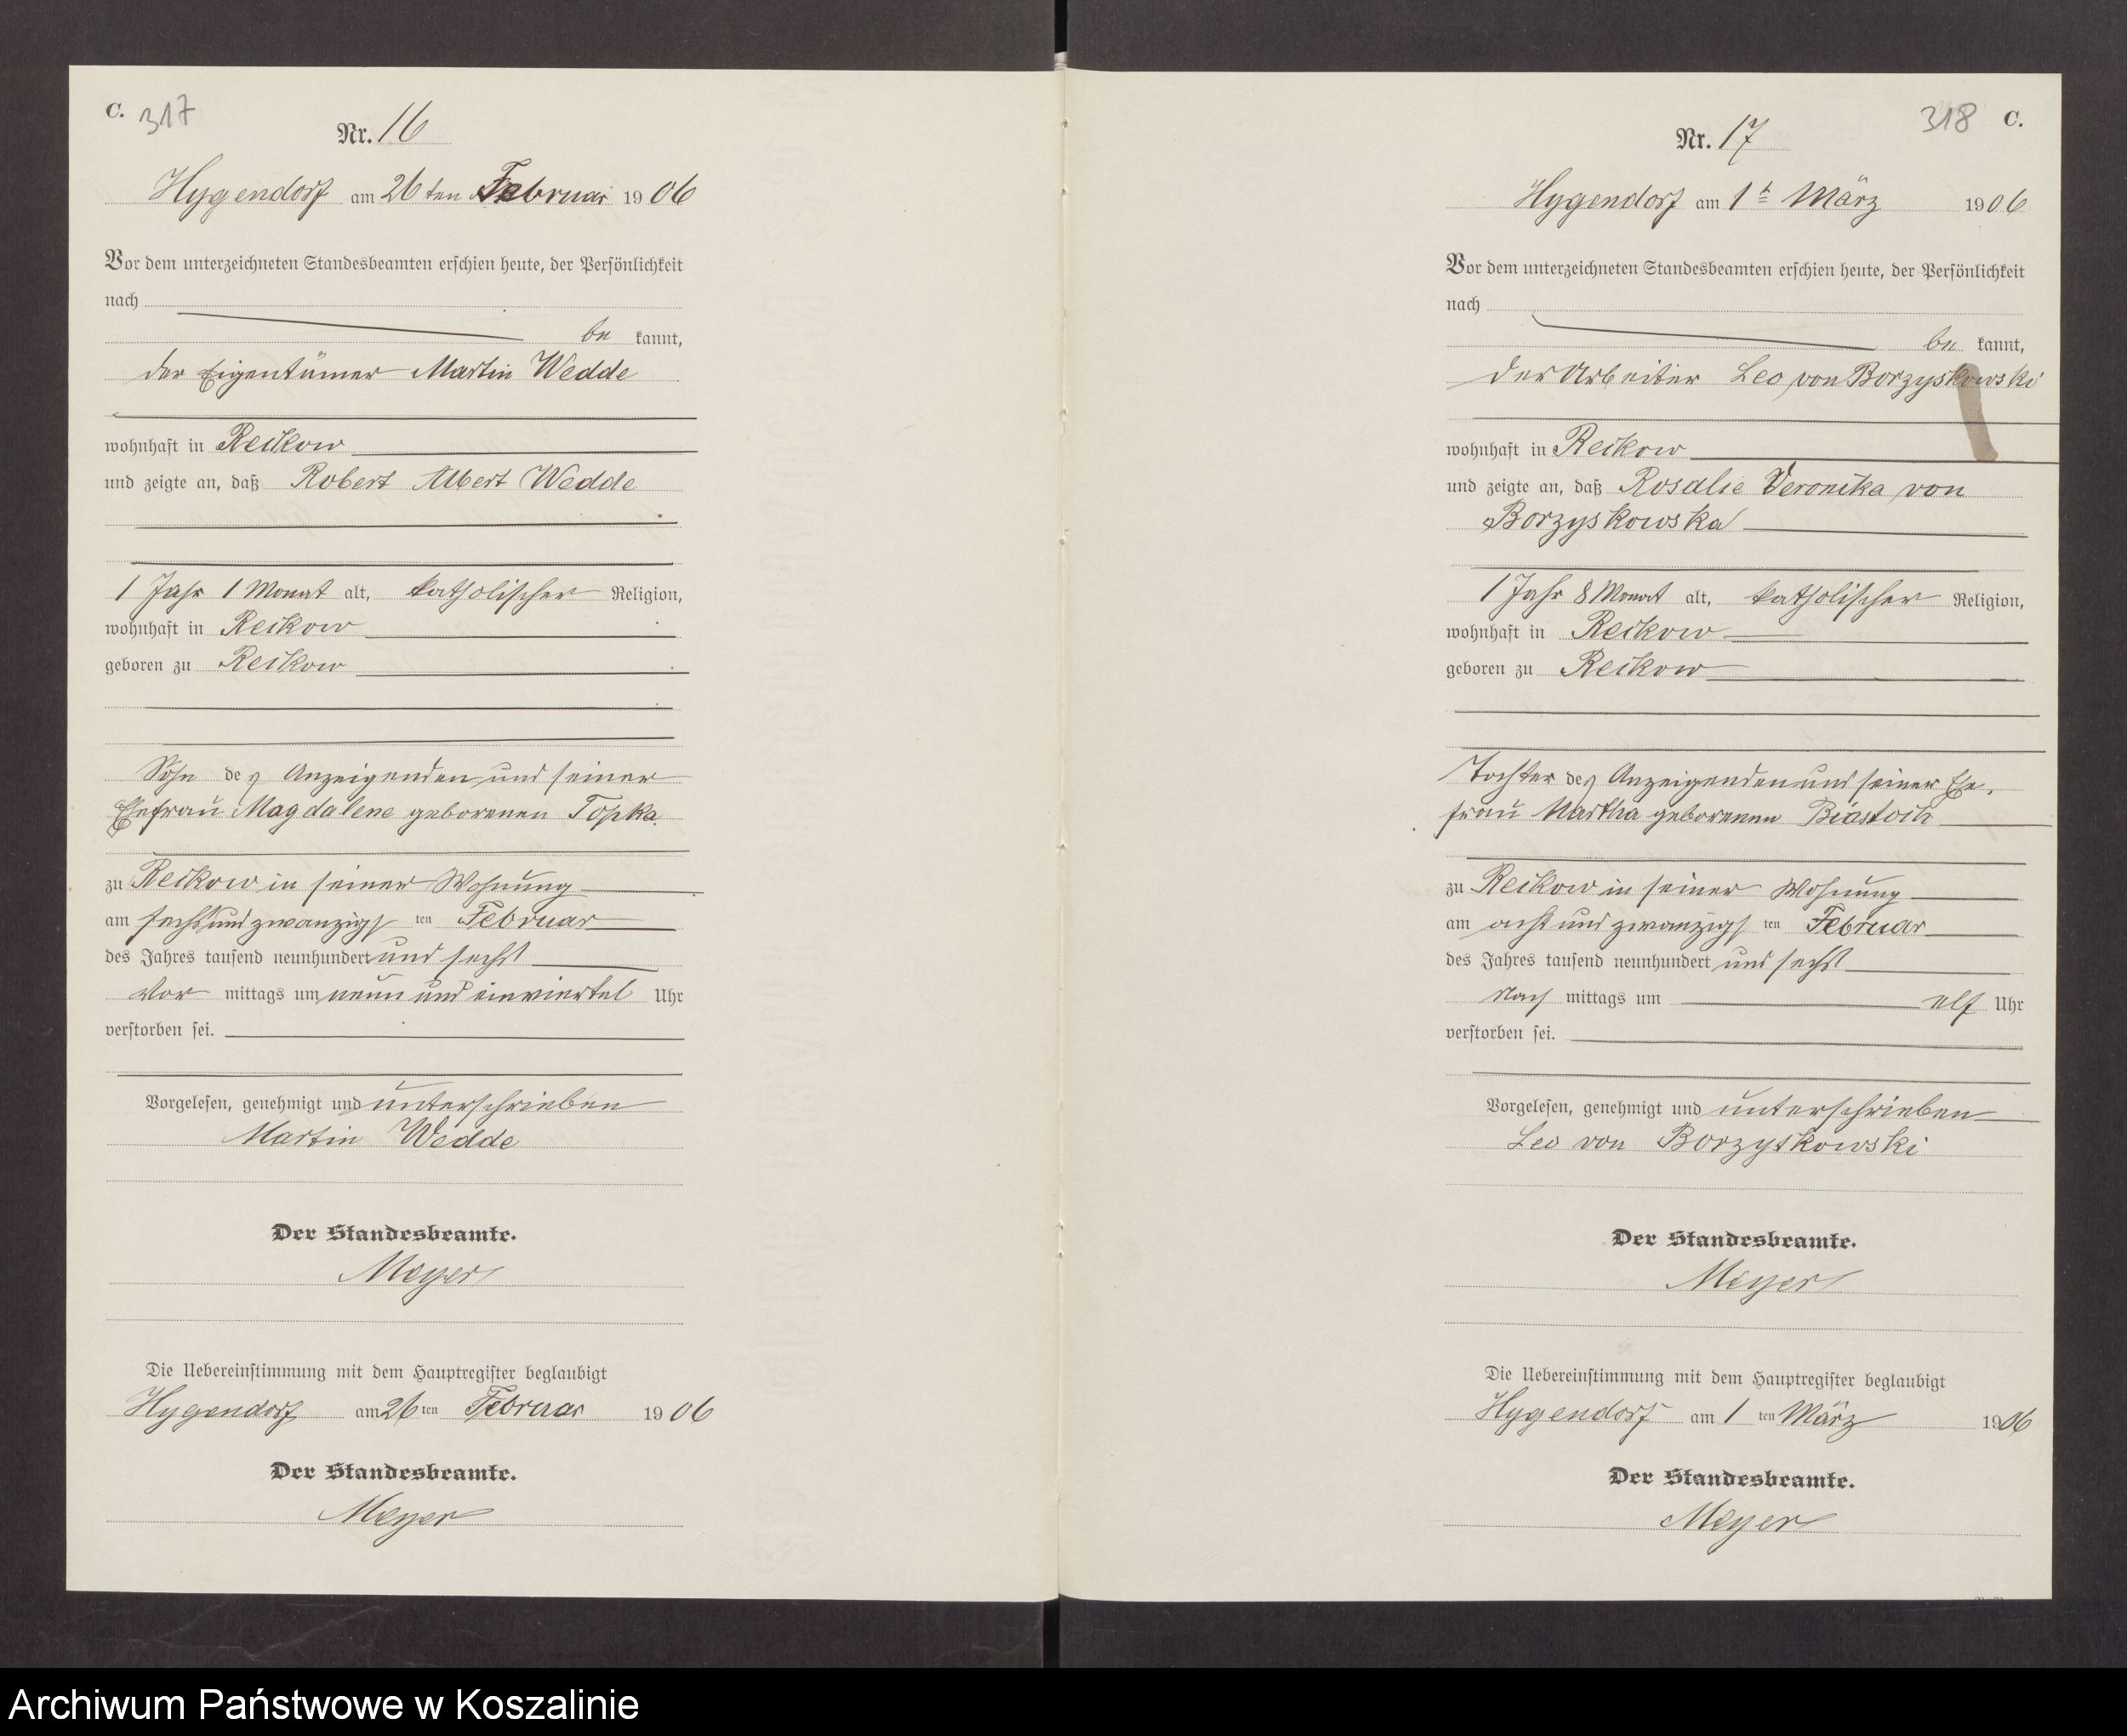 C. 317
Nr. 16
Hygendorf am 26 ten Februar 1906
Vor dem unterzeichneten Standesbeamten erschien heute, der Persönlichkeit
nach
be kannt,
der Eigentümer Martin Wedde
wohnhaft in Reckow
und zeigte an, daß Robert Albert Wedde
1 Jahr 1 Monat alt, katholischer Religion,
wohnhaft in Reckow
geboren zu Reckow
Sohn des Anzeigenden und seiner
Ehefrau Magdalene geborenen Topka
zu Reckow in seiner Wohnung
am sechsundzwanzigs ten Februar
des Jahres tausend neunhundert und sechs
Vor mittags um neun und einviertel Uhr
verstorben sei.
Vorgelesen, genehmigt und unterschrieben
Martin Wedde
Der Standesbeamte.
Meyer
Die Uebereinstimmung mit dem Hauptregister beglaubigt
Hygendorf am 26 ten Februar 1906
Der Standesbeamte.
Meyer
318 C.
Nr. 17
Hygendorf am 1t März 1906
Vor dem unterzeichneten Standesbeamten erschien heute, der Persönlichkeit
nach
be kannt,
der Arbeiter Leo von Borzyskowski
wohnhaft in Reckow
und zeigte an, daß Rosalie Veronika von
Borzyskowska
1 Jahr 8 Monat alt, katholischer Religion,
wohnhaft in Reckow
geboren zu Reckow
Tochter des Anzeigenden und seiner Ehe-
frau Martha geborenen
zu Reckow in seiner Wohnung
am acht und zwanzigs ten Februar
des Jahres tausend neunhundert und sechs
Nach mittags um elf Uhr
verstorben sei.
Vorgelesen, genehmigt und unterschrieben
Leo von Borzyskowski
Der Standesbeamte.
Meyer
Die Uebereinstimmung mit dem Hauptregister beglaubigt
Hygendorf am 1 ten März 1906
Der Standesbeamte.
Meyer
Archiwum Państwowe w Koszalinie